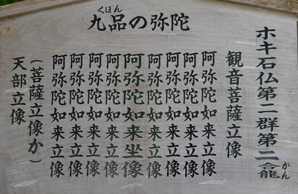 九品の弥陀
くぼん
ホキ石仏第二群第二龕
がん
観音菩薩立像
阿弥陀如来立像
阿弥陀如来立像
阿弥陀如来立像
阿弥陀如来立像
阿弥陀如来坐像
阿弥陀如来立像
阿弥陀如来立像
阿弥陀如来立像
阿弥陀如来立像
(菩薩立像か)
天部立像